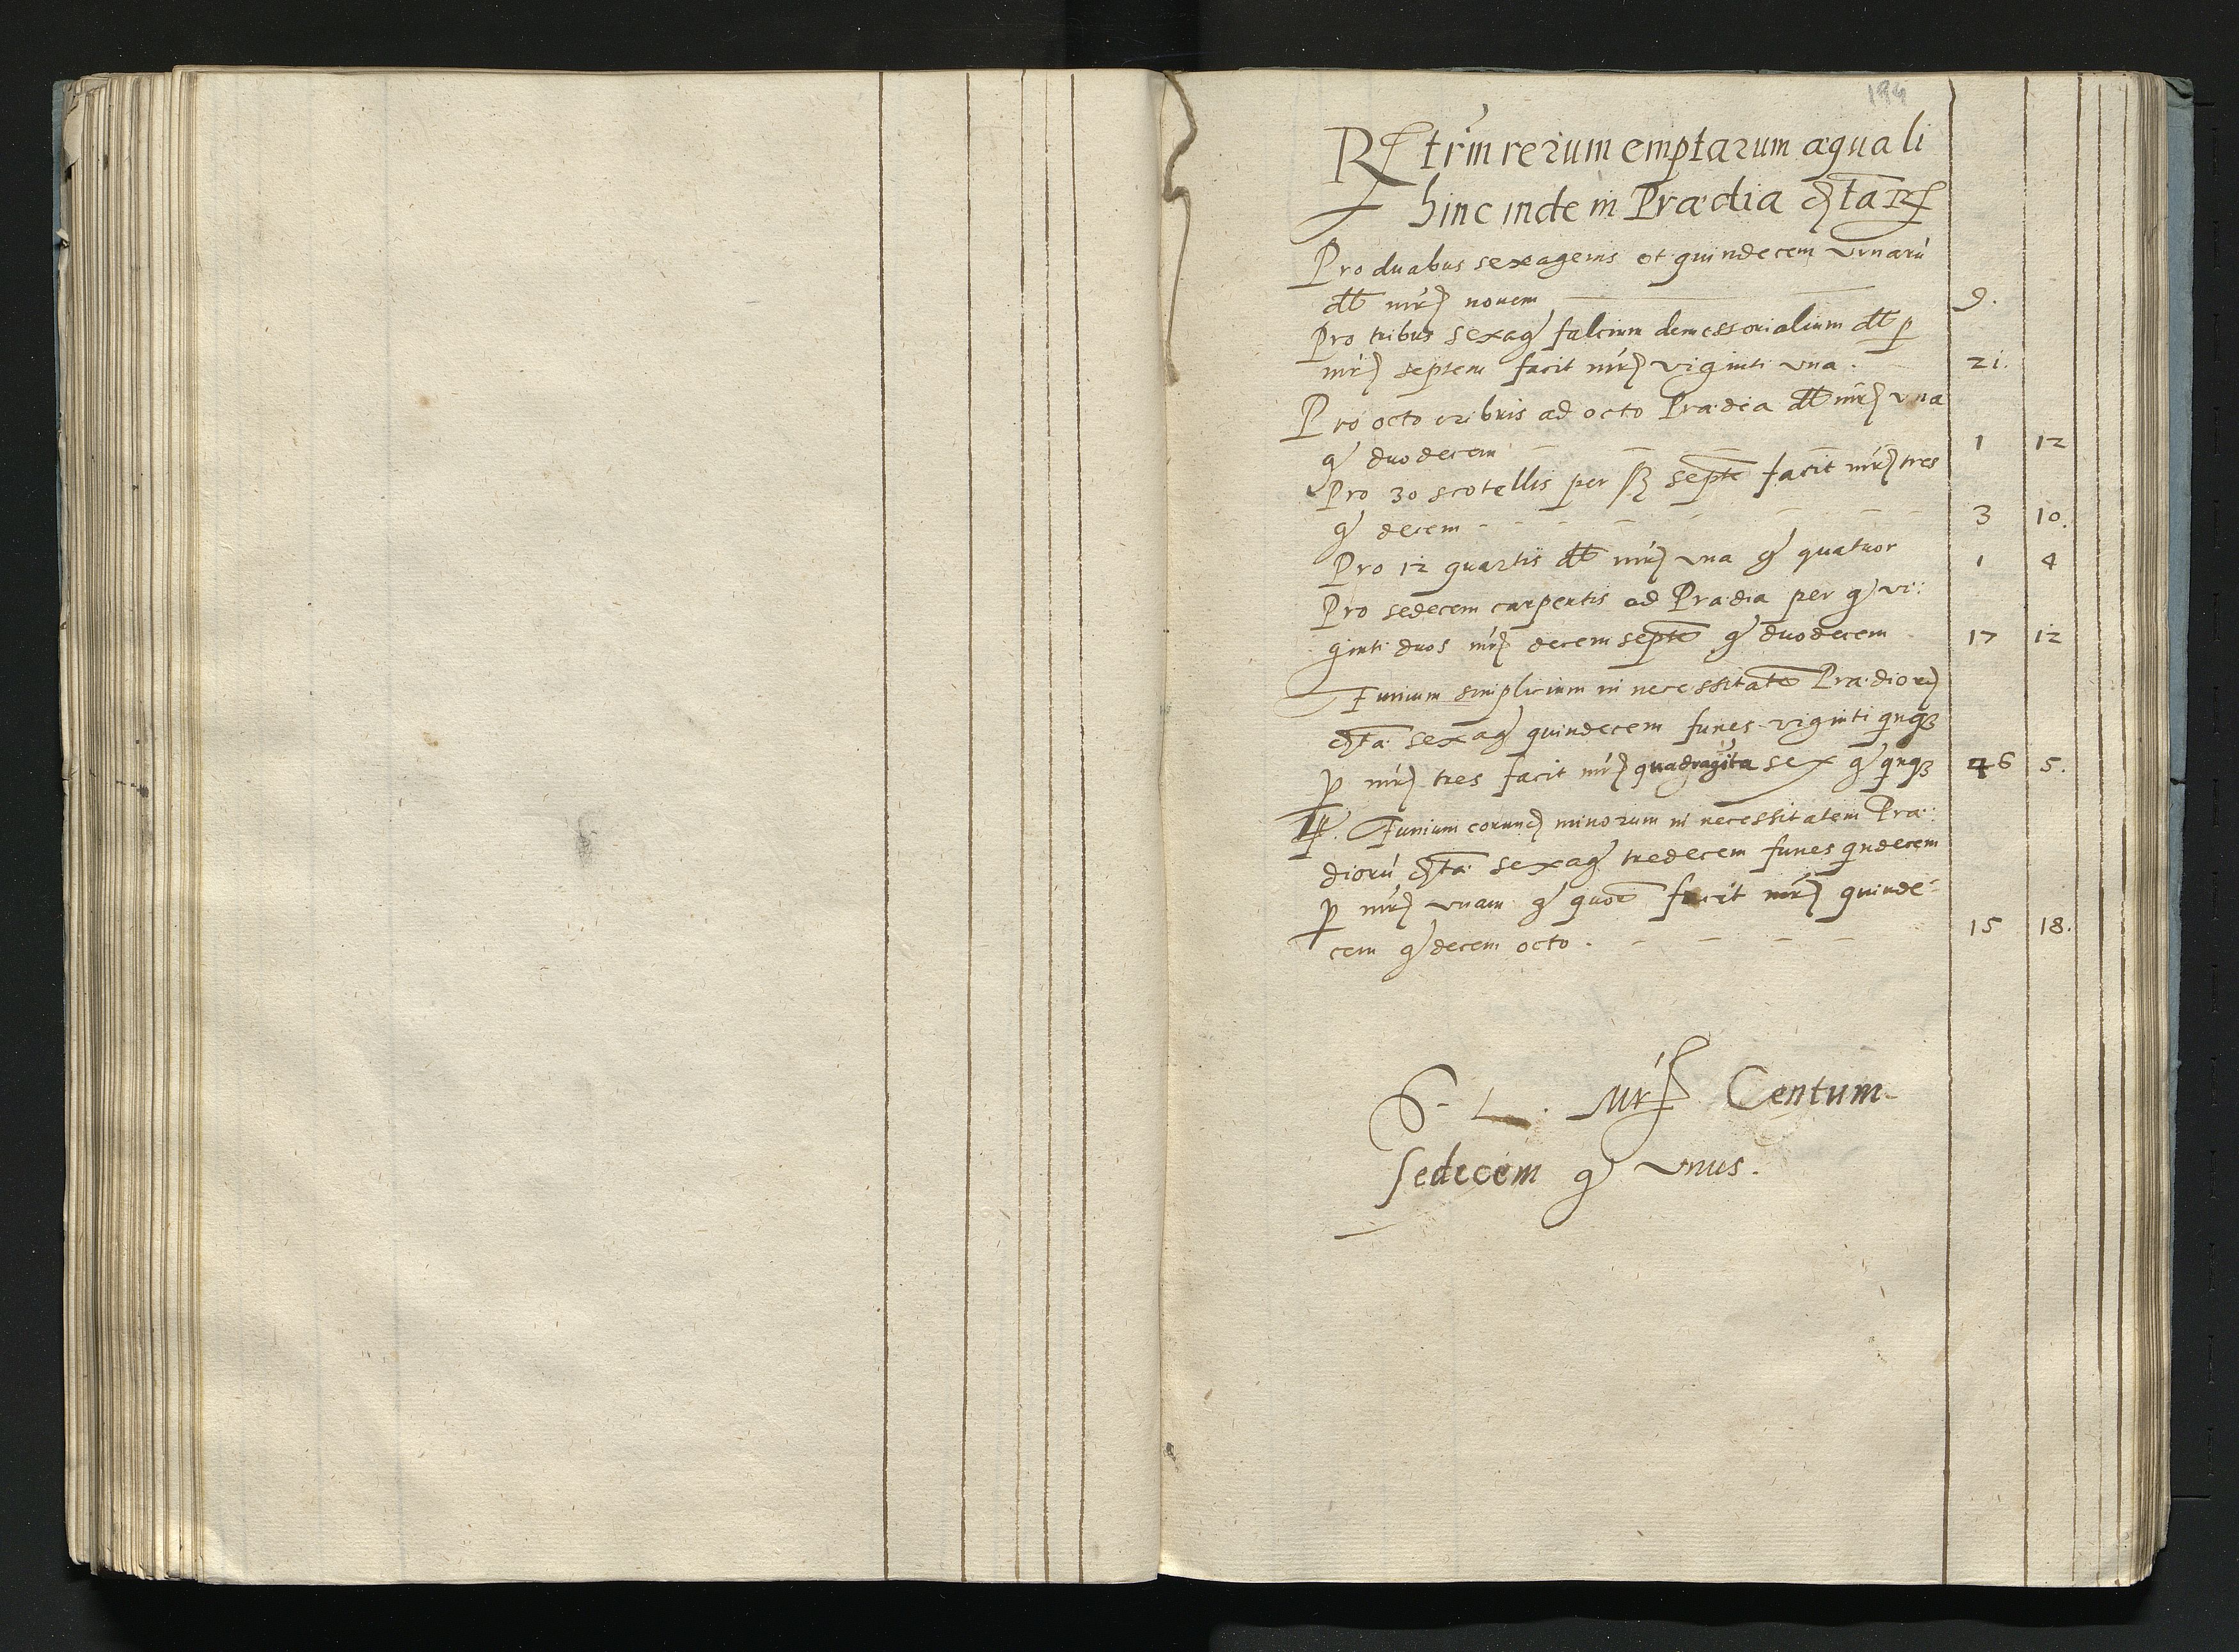 194
Rstrm rerum emptarum æquali
hinc inde in Prædia
Pro duabus sexagenis et quindecem vrnarū
dt mrc nouem 9.
Pro tribus sexag falcium demessorialium dt p
mrc septem facit mrc viginti vna . 21.
Pro octo cribris ad octo Prædia dt mrc vna
g duodecem 1 12
Pro 30 scotellis per septe facit mrc tres
g decem 3 10.
Pro 12 quartis dt mrc vna g quatuor 1 4
Pro sedecem carpentis ad Prædia per g vi:
ginti duos mrc decem septe g duodecem 17 12
Funium simplicium in necessitate Prædior
sexag quindecem funes viginti qnq3
p mrc tres facit mrc quadragita sex g qnq3 46 5.
Funium eorund minorum in necessitatem Præ:
diorū sexag tredecem funes qndecem
p mrc vnam g facit mrc quinde:
cem g decem octo . 15 18.
S - L . Mrc Centum
sedecem g vnus .